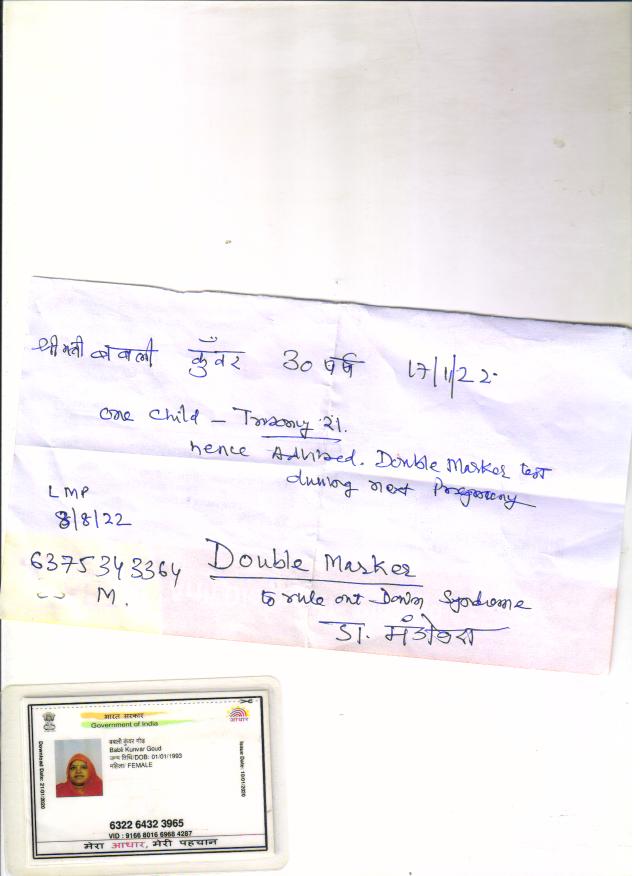 श्रीमती बबली कुँवर 30 वर्ष 17/1/22
one child - Trisomy 21.
hence Advised. Double Marker test
during next Pregnancy
LMP
8/8/22
6375343364
M.
Double Marker
to rule out Down Syndrome
डा.
भारत सरकार
Government of India
आधार
बबली कुंवर गौड
Babli Kunvar Goud
जन्म तिथि/DOB: 01/01/1993
महिला/ FEMALE
Download Date: 21/01/2020
Issue Date: 10/01/2020
6322 6432 3965
VID : 9166 8016 6968 4287
मेरा आधार, मेरी पहचान